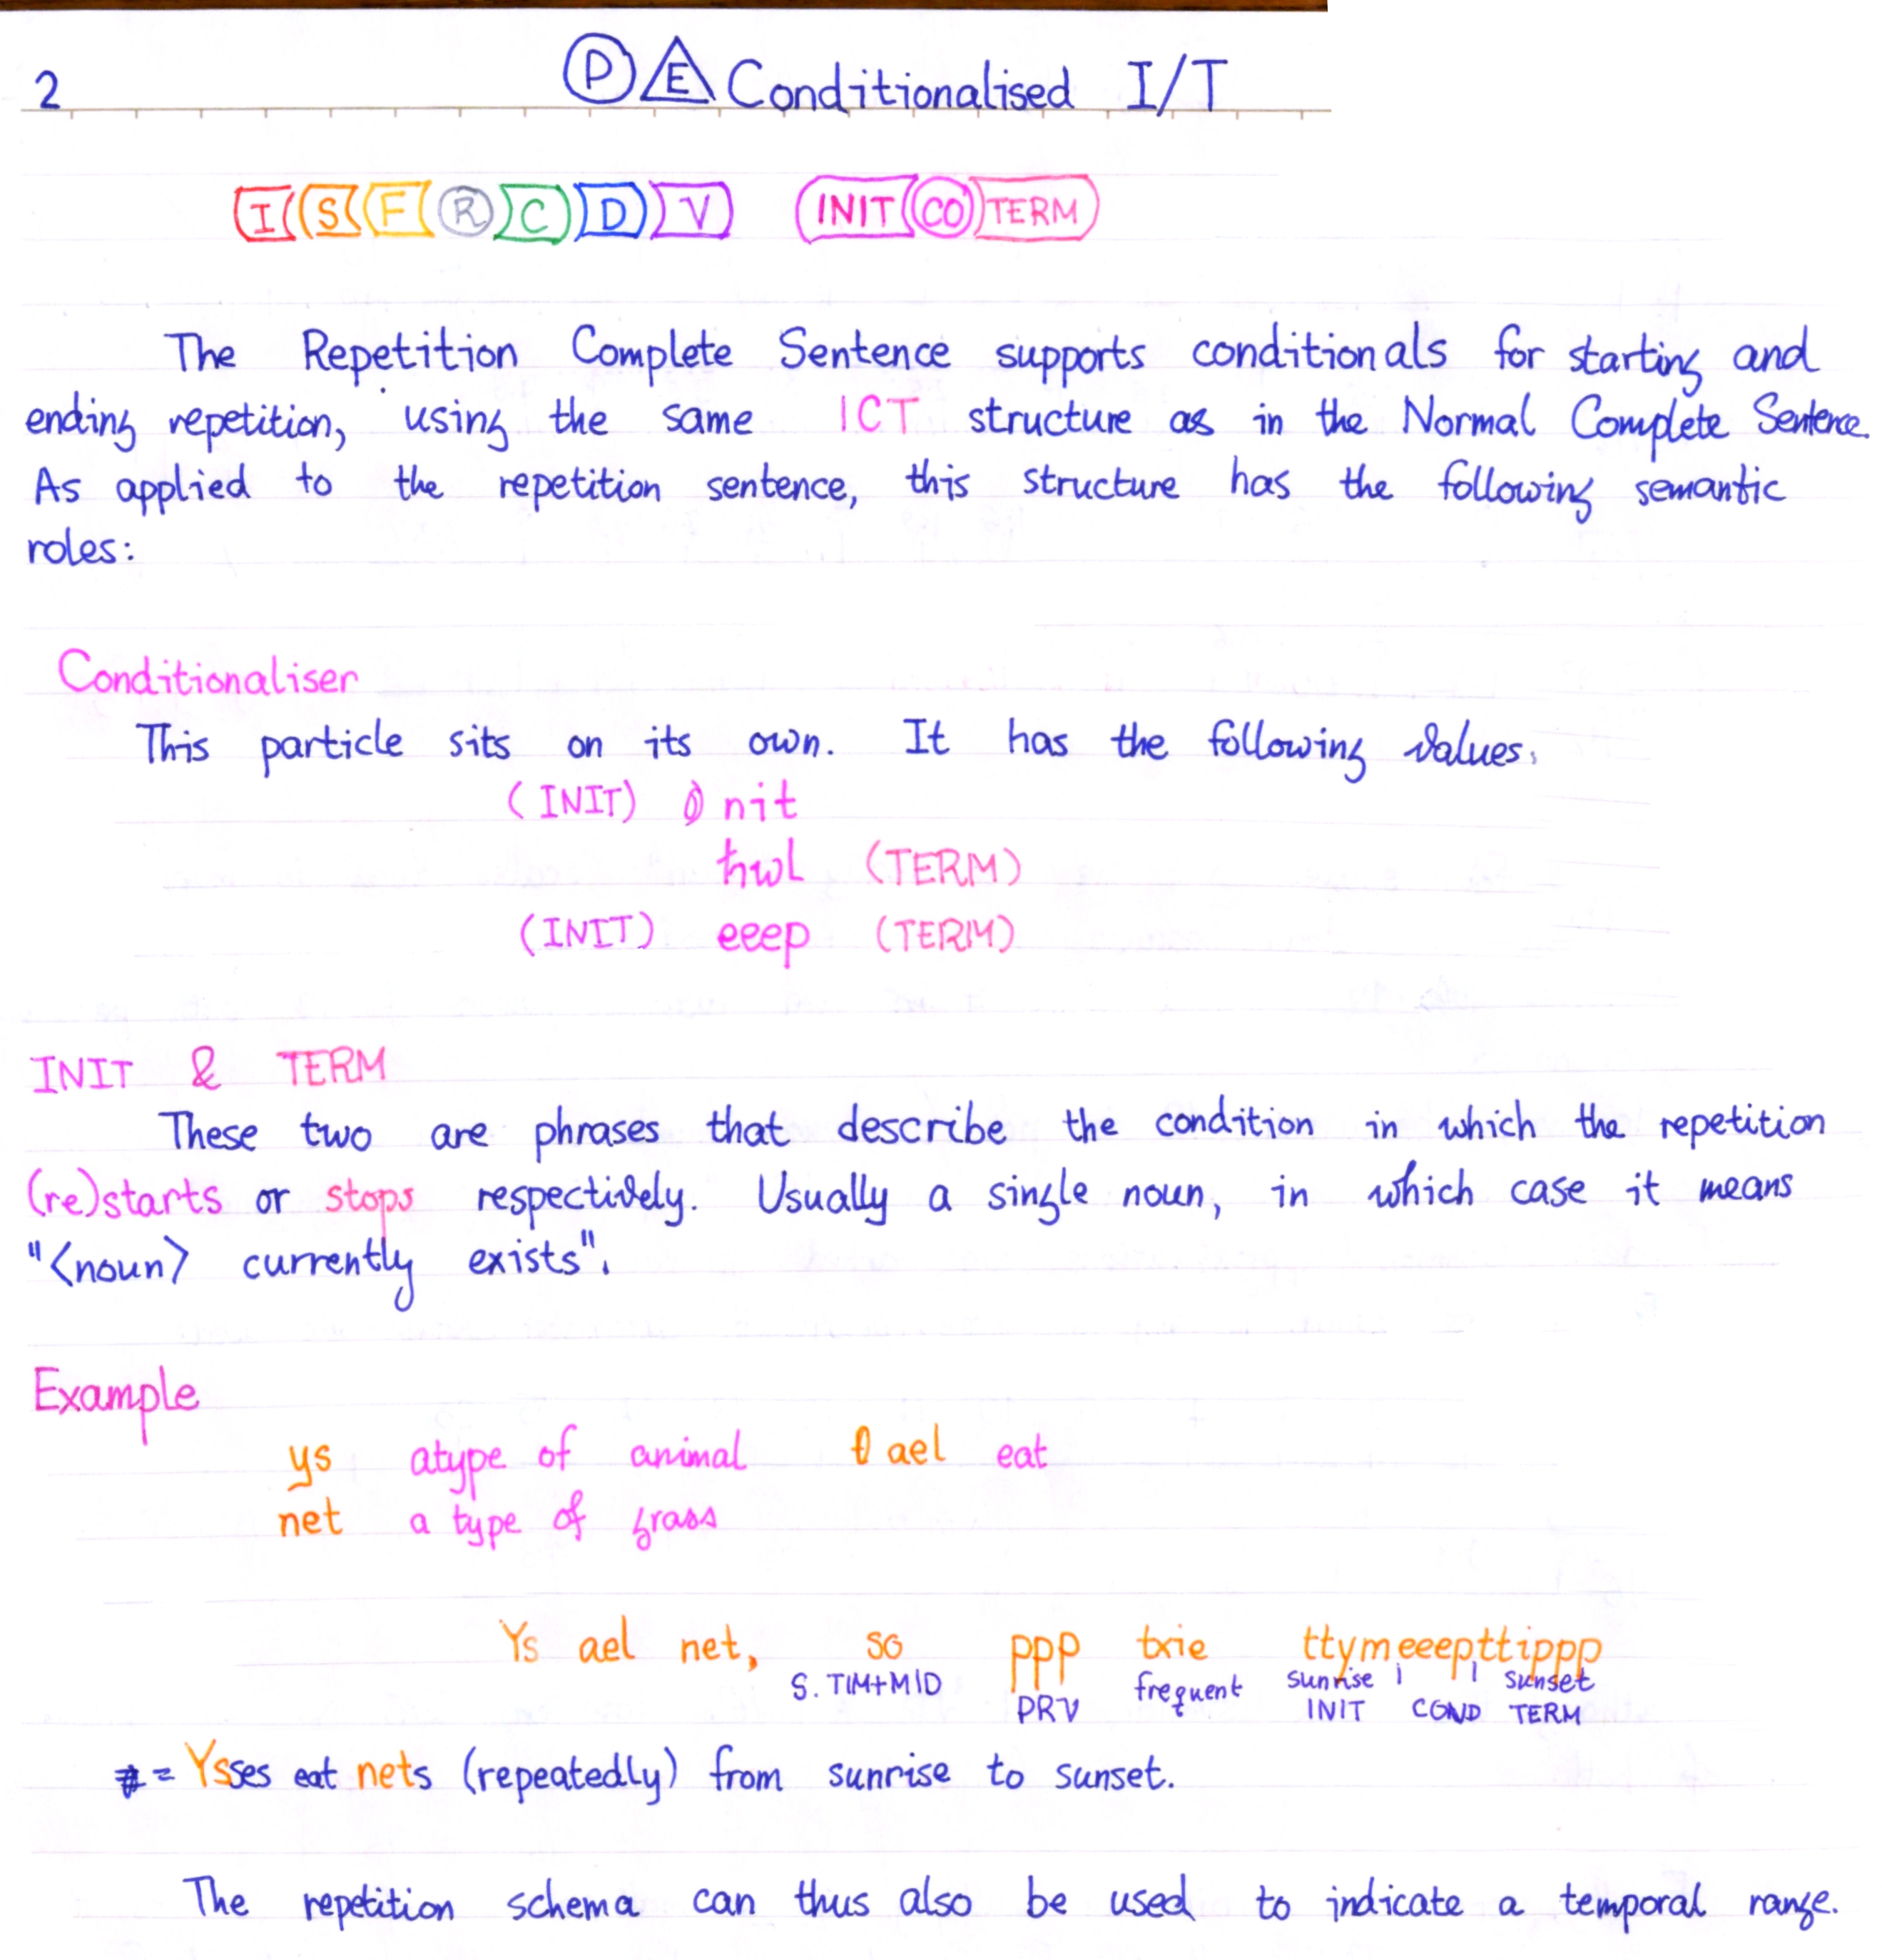 2 P E Conditionalised I/T
I S F R C D V INIT CO TERM
The Repetition Complete Sentence supports conditionals for starting and
ending repetition, using the same ICT structure as in the Normal Complete Sentence.
As applied to the repetition sentence, this structure has the following semantic
roles:
Conditionaliser
This particle sits on its own. It has the following values.
(INIT) nit
ħwl (TERM)
(INIT) eeep (TERM)
INIT & TERM
These two are phrases that describe the condition in which the repetition
(re)starts or stops respectively. Usually a single noun, in which case it means
"<noun> currently exists".
Example
ys atype of animal ael eat
net a type of grass
Ys ael net, so ppp txie ttymeeepttippp
S. TIM+MID PRV frequent sunrise | | sunset
INIT COND TERM
= Ysses eat nets (repeatedly) from sunrise to sunset.
The repetition schema can thus also be used to indicate a temporal range.